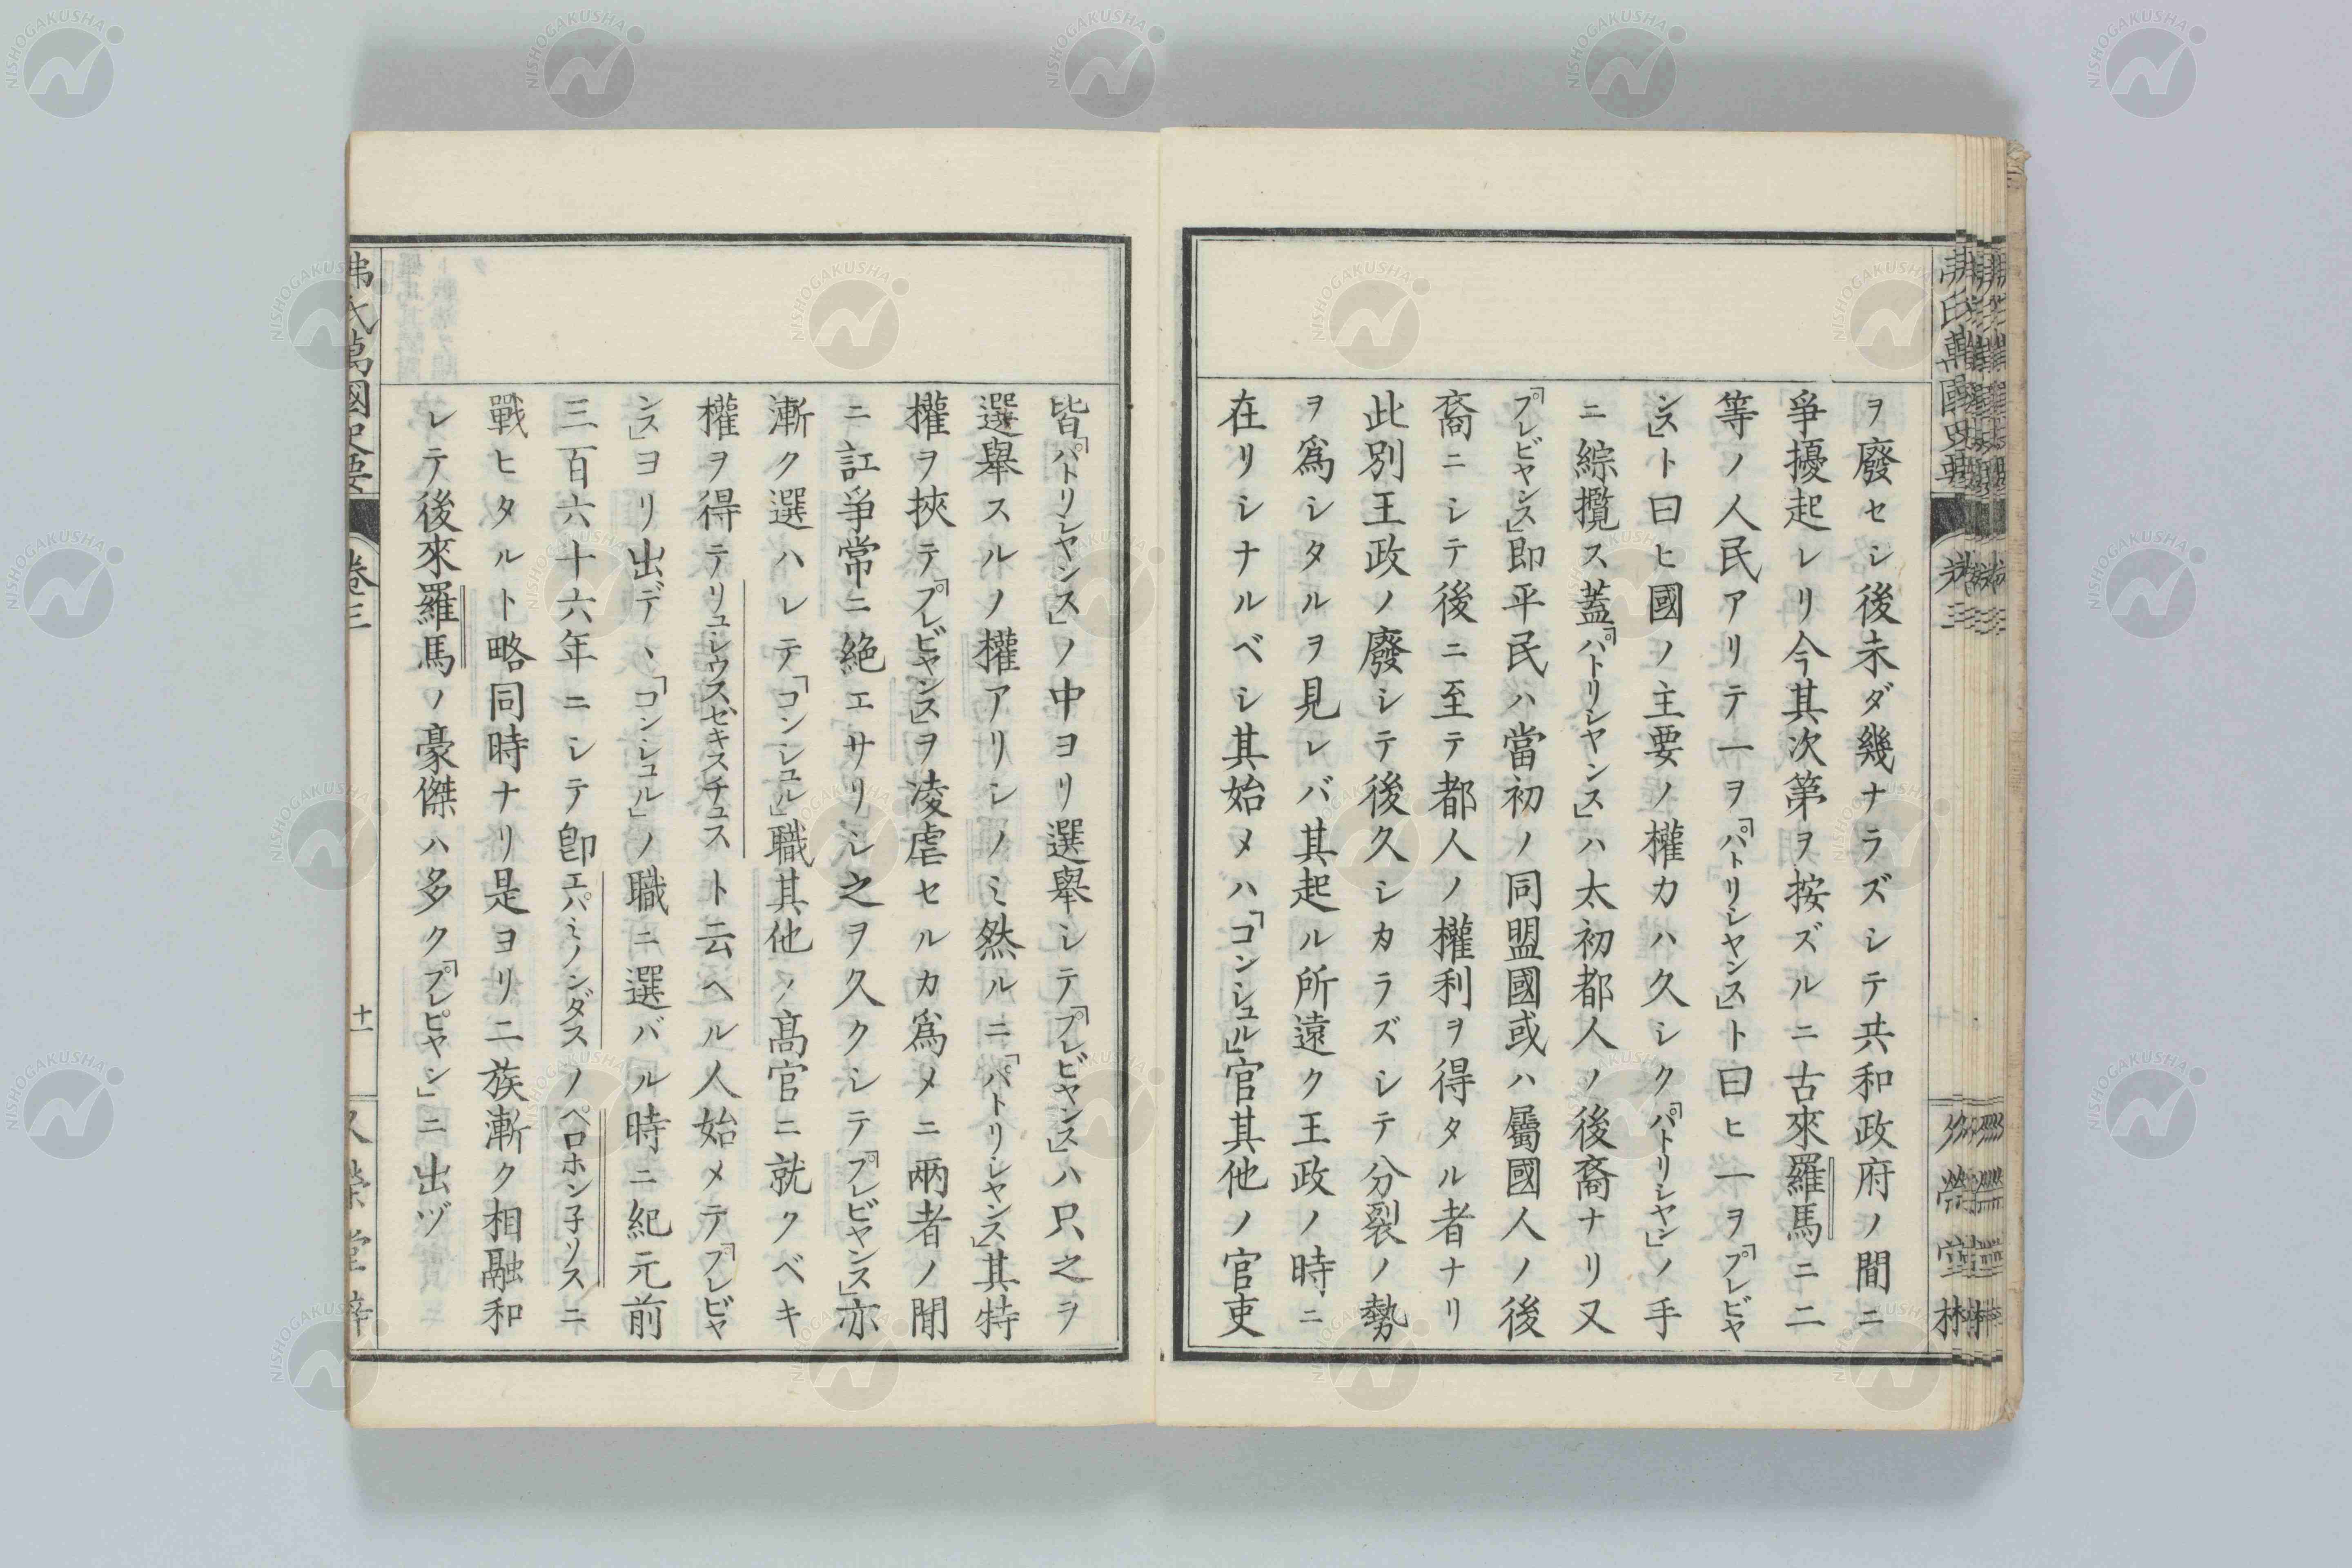 ヲ廢セシ後未ダ幾ナラズシテ共和政府ノ間ニ
爭擾起レリ今其次第ヲ按ズルニ古來羅馬ニ二
等ノ人民アリテ一ヲ「パトリシヤンス」ト曰ヒ一ヲ「プレビヤ
ンス」ト曰ヒ國ノ主要ノ權力ハ久シク「パトリシヤン」ノ手
ニ綜攬ス蓋「パトリシヤンス」ハ太初都人ノ後裔ナリ又
「プレビヤンス」即平民ハ當初ノ同盟國或ハ屬國人ノ後
裔ニシテ後ニ至テ都人ノ權利ヲ得タル者ナリ
此別王政ノ廢シテ後久シカラズシテ分裂ノ勢
ヲ爲シタルヲ見レバ其起ル所遠ク王政ノ時ニ
在リシナルベシ其始メハ「コンシュル」官其他ノ官吏
皆「パトリシヤンス」ノ中ヨリ選舉シテ「プレビヤンス」ハ只之ヲ
選舉スルノ權アリシノミ然ルニ「パトリシヤンス」其特
權ヲ挾テ「プレビヤンス」ヲ凌虐セルカ爲メニ兩者ノ間
ニ訌爭常ニ絶エサリシ之ヲ久クシテ「プレビヤンス」亦
漸ク選ハレテ「コンシュル」職其他ノ高官ニ就クベキ
權ヲ得テリュシウスゼキスチュスト云ヘル人始メテ「プレビヤ
ンス」ヨリ出デヽ「コンシュル」ノ職ニ選バル時ニ紀元前
三百六十六年ニシテ卽エパミノンダスノペロホン子リスニ
戰ヒタルト略同時ナリ是ヨリ二族漸ク相融和
シテ後來羅馬ノ豪傑ハ多ク「プレピヤン」ニ出ヅ
弗氏萬國史要 卷三 十一
NISHOGAKUSHA